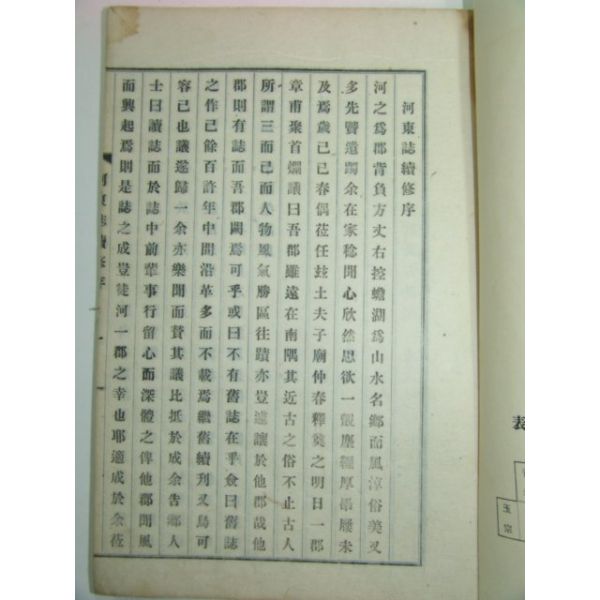 河東誌續修序
河之爲郡背負方丈右控蟾湖爲山水名鄕而風淳俗美又
多先賢遺躅余在家稔聞心欣然思欲一 塵纓厚 屢未
及焉歲己巳春偶莅任玆土夫子廟仲春釋奠之明日一郡
章甫聚首爛議曰吾郡雖遠在南隅其近古之俗不止古人
所謂三而已而人物風氣勝區往蹟亦豈遽讓於他郡哉他
郡則有誌而吾郡闕焉可乎或曰不有舊誌在乎僉曰舊誌
之作已餘百許年中間沿革多而不載焉繼舊續刋又烏可
容已也議遂歸一余亦樂聞而贊其議比抵於成余告鄕人
士曰讀誌而於誌中前輩事行留心而深體之俾他郡聞風
而興起焉則是誌之成豈徒河一郡之幸也耶適成於余莅
玉宗